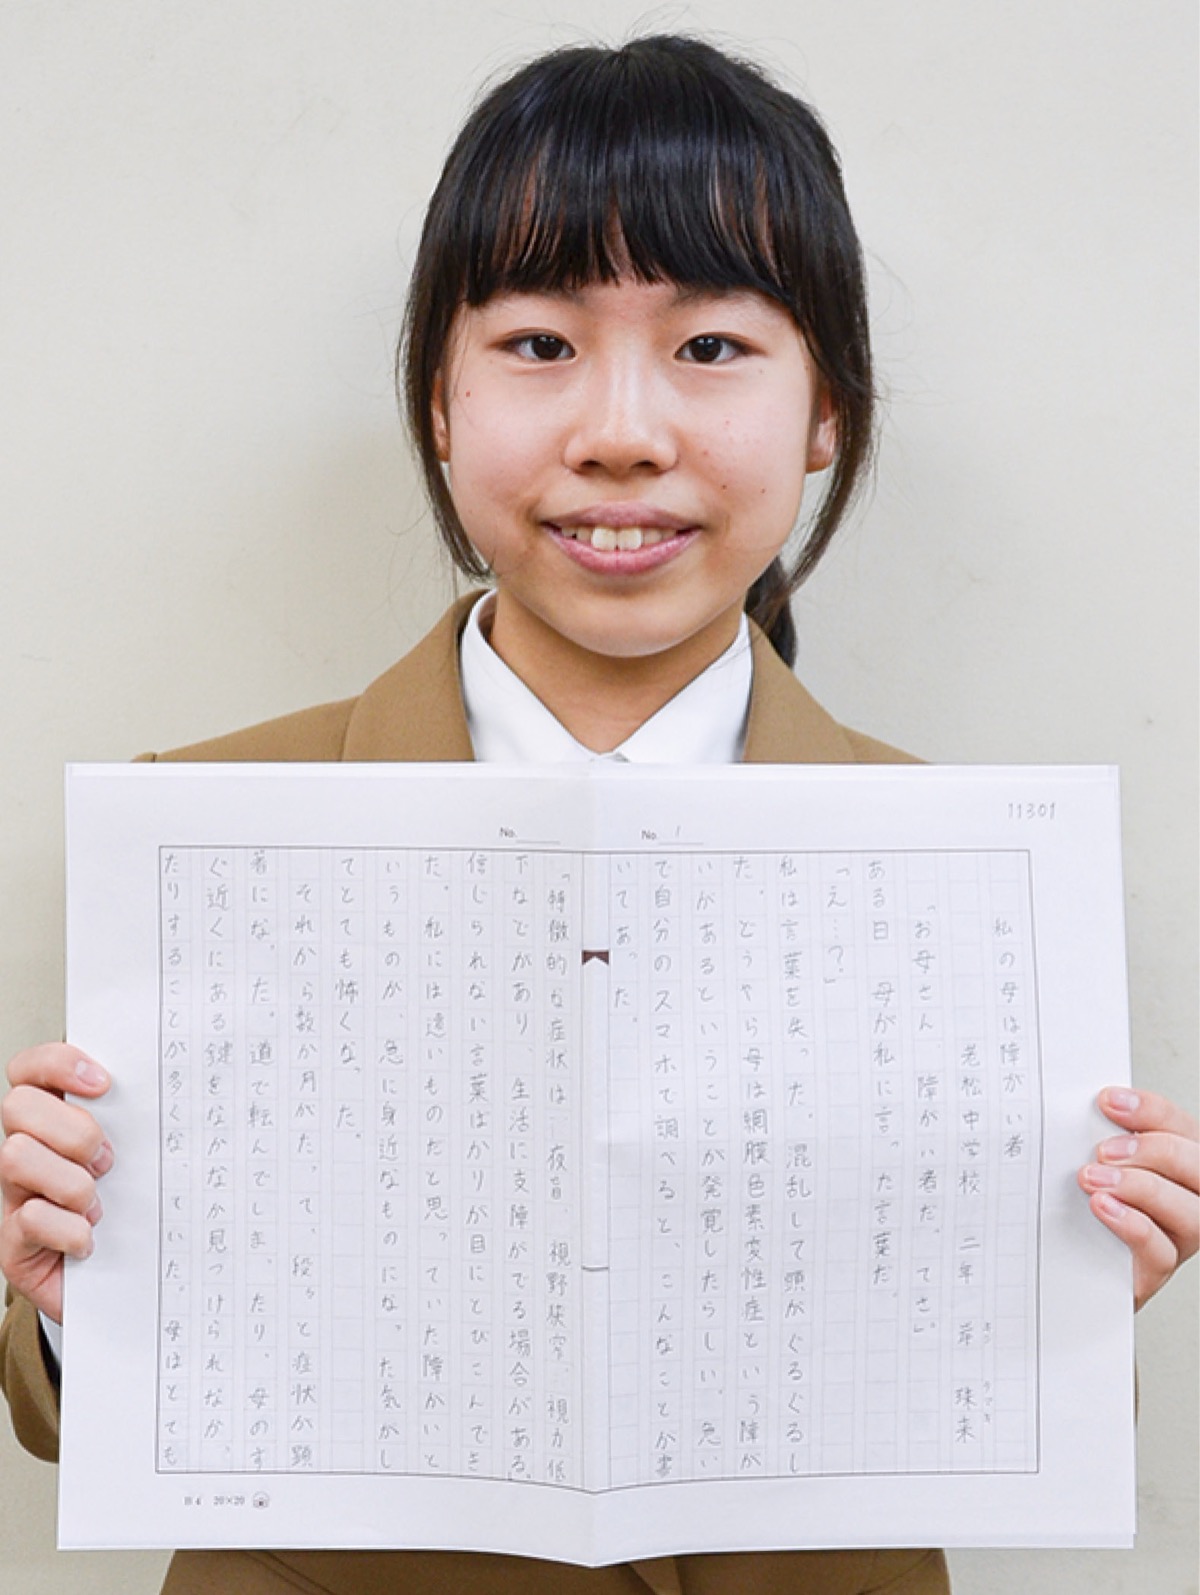 11301
No. 1
私の母は障がい者
老松中学校 二年 辛 珠来
「お母さん、障がい者だってさ。」
ある日 母が私に言った言葉だ。
「え…？」
私は言葉を失った。混乱して頭がぐるぐるし
た。どうやら母は網膜色素変性症という障が
いがあるということが発覚したらしい。急い
で自分のスマホで調べると、こんなことが書
いてあった。
No.
「特徴的な症状は…夜盲、視野狭窄…視力低
下などがあり、生活に支障がでる場合がある。
信じられない言葉ばかりが目にとびこんでき
た。私には遠いものだと思っていた障がいと
いうものが、急に身近なものになった気がし
てとても怖くなった。
それから数か月がたって、段々と症状が顕
著になった。道で転んでしまったり。母のす
ぐ近くにある鍵をなかなか見つけられなかっ
たりすることが多くなっていた。母はとても
B4 20×20